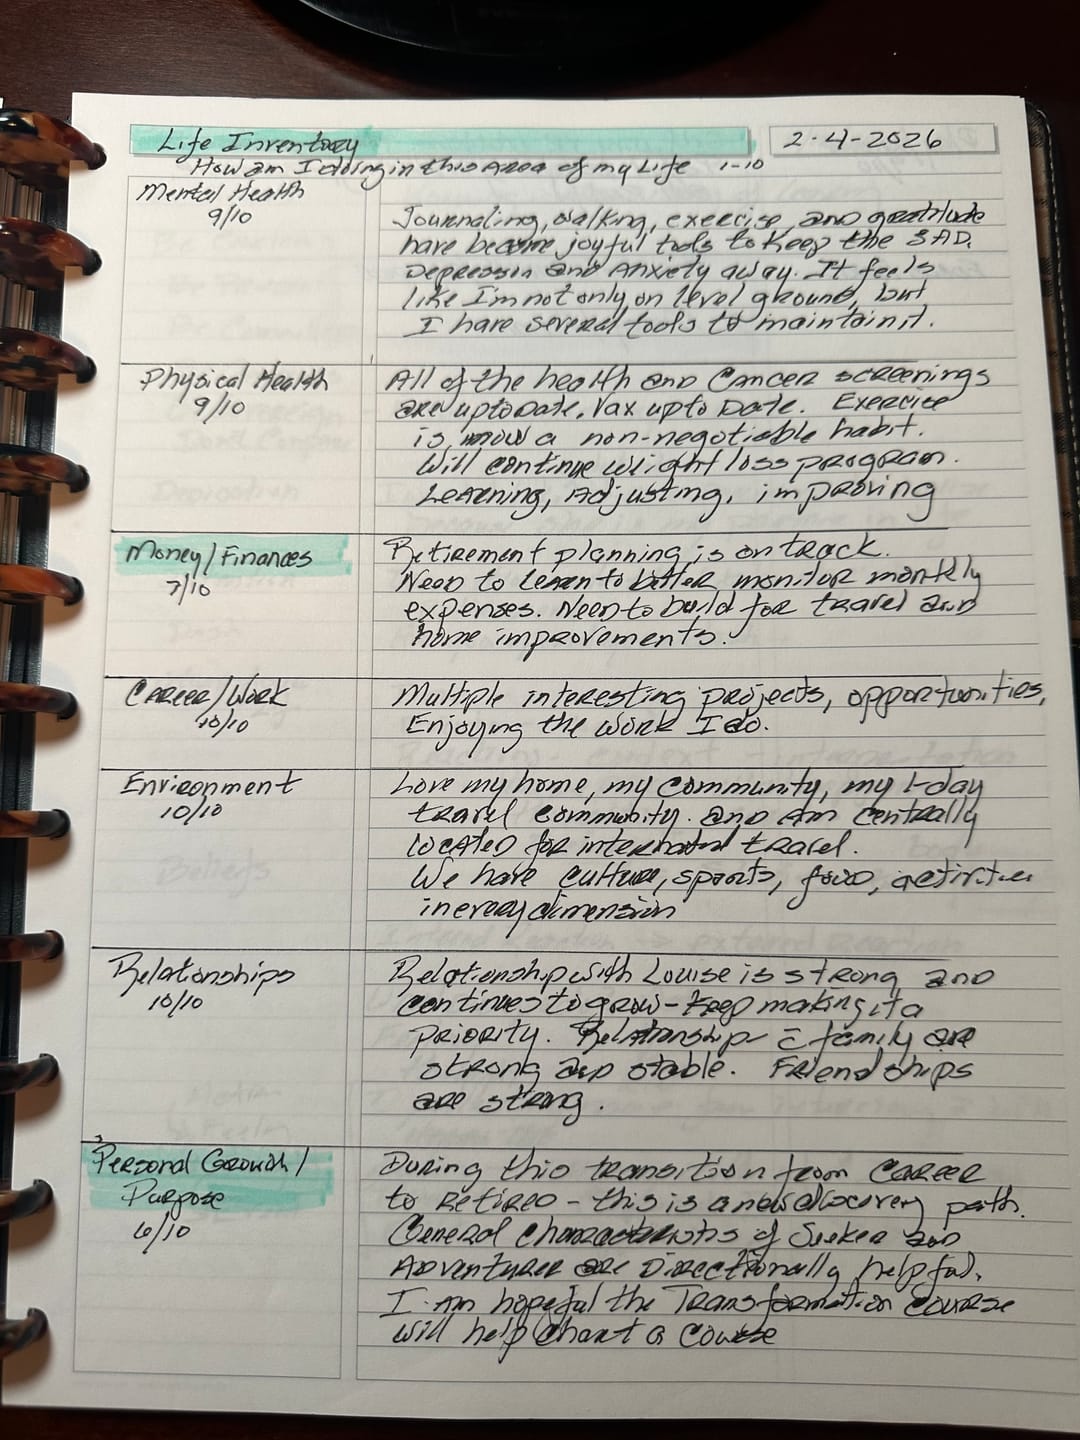 Life Inventory
2-4-2026
How am I doing in this Area of my Life 1-10
Mental Health
9/10
Journaling, walking, exercise, and gratitude
have become joyful tools to keep the SAD,
Depression and Anxiety away. It feels
like I'm not only on level ground, but
I have several tools to maintain it.
Physical Health
9/10
All of the health and Cancer screenings
are up to Date, Vax up to Date. Exercise
is now a non-negotiable habit.
Will continue weight loss program.
Learning, Adjusting, improving
Money/Finances
7/10
Retirement planning is on track.
Need to learn to better monitor monthly
expenses. Need to build for travel and
home improvements.
Career/Work
10/10
Multiple interesting projects, opportunities,
Enjoying the work I do.
Environment
10/10
Love my home, my community, my 1-day
travel community. and Am centrally
located for international travel.
We have culture, sports, food, activities
in every dimension
Relationships
10/10
Relationship with Louise is strong and
continues to grow - keep making it a
priority. Relationship c̄ family are
strong and stable. Friendships
are strong.
Personal Growth/
Purpose
6/10
During this transition from Career
to Retired - this is a new discovery path.
General characteristics of Seeker and
Adventurer are Directionally helpful.
I am hopeful the Transformation Course
will help chart a Course